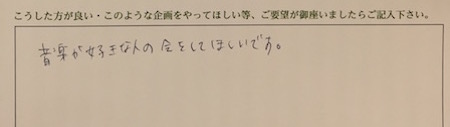 こうした方が良い・このような企画をやってほしい等、ご要望が御座いましたらご記入下さい。
音楽が好きな人の会をしてほしいです。